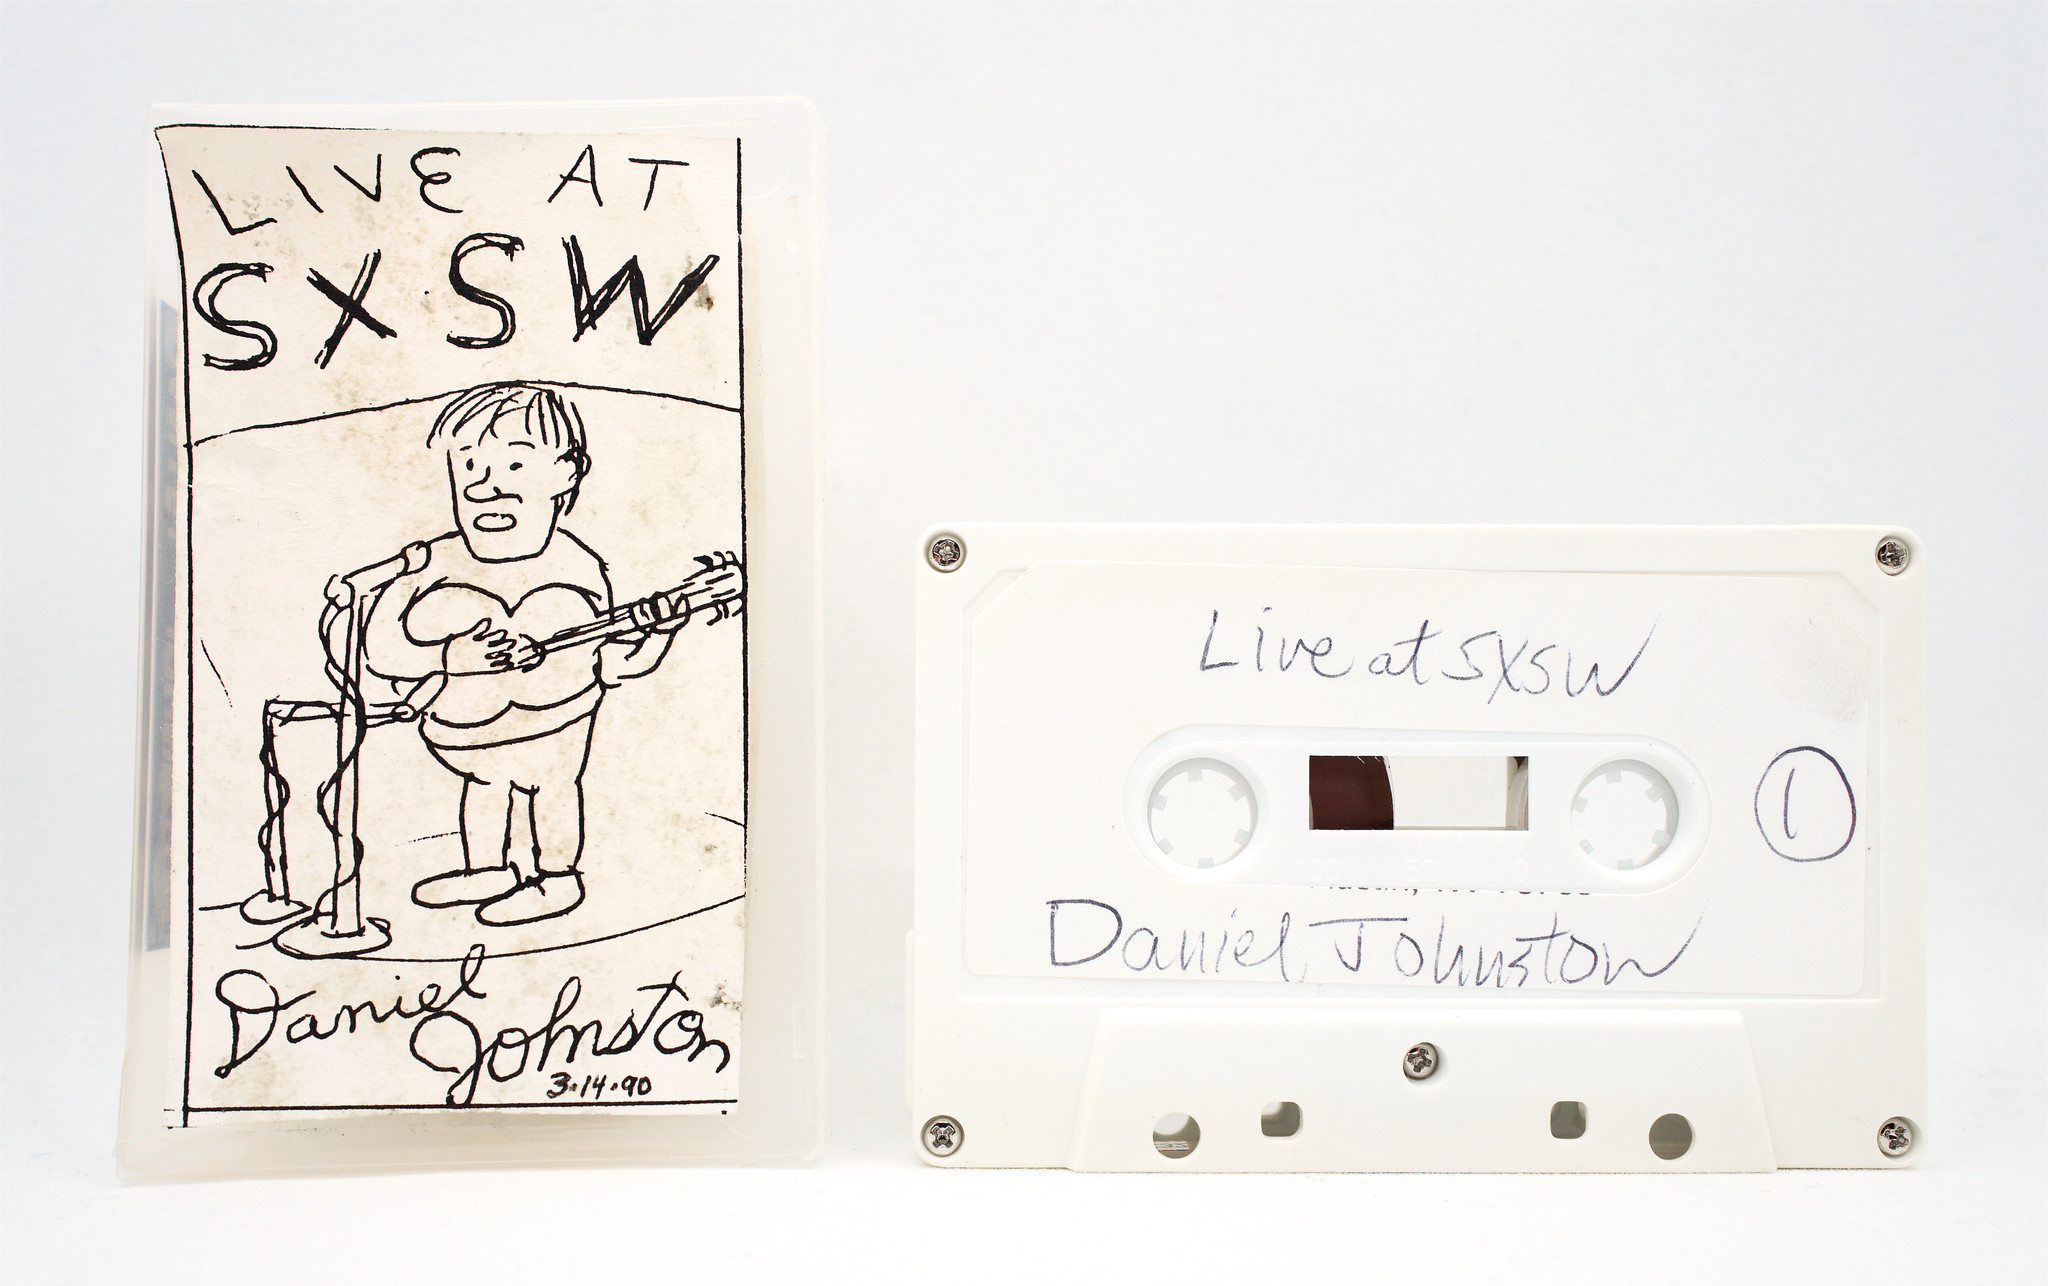 LIVE AT
SXSW
Daniel
Johnston
3.14.90
Live at SXSW
1
100 50 0
Daniel Johnston